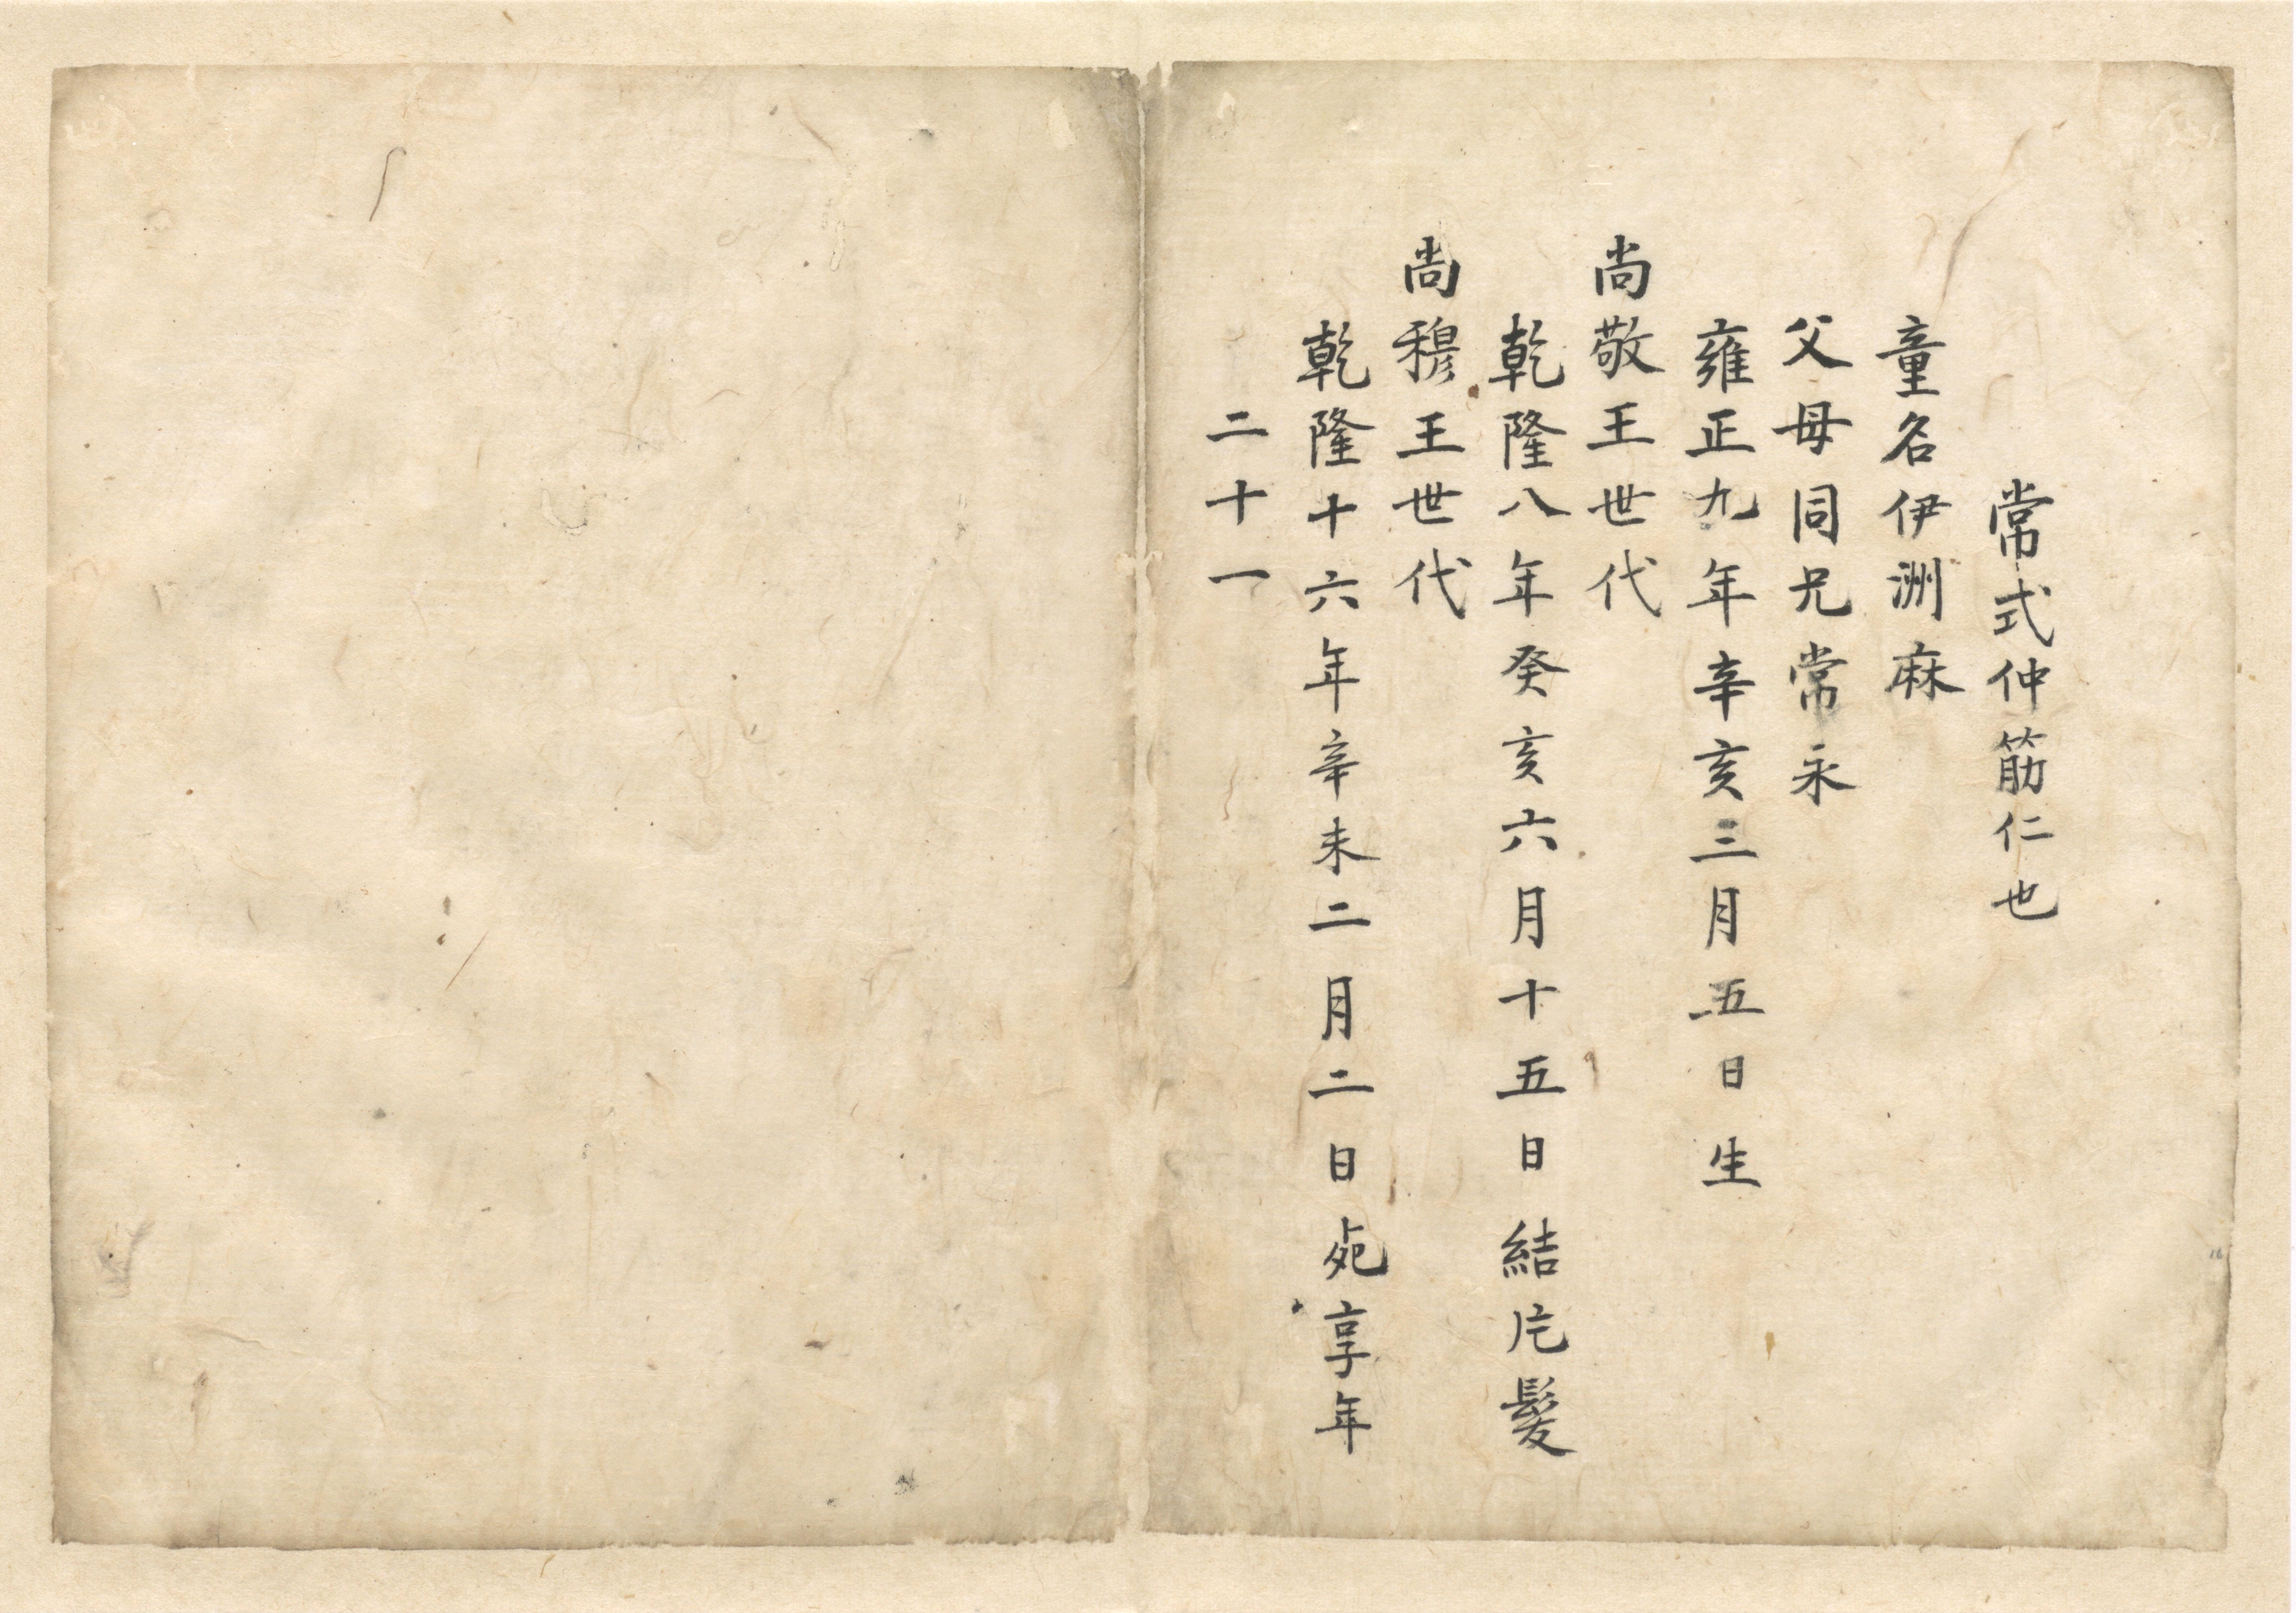 常式仲筋仁也
童名伊洲麻
父母同兄常永
雍正九年辛亥三月五日生
尚敬王世代
乾隆八年癸亥六月十五日結片髮
尚穆王世代
乾隆十六年辛未二月二日死享年
二十一